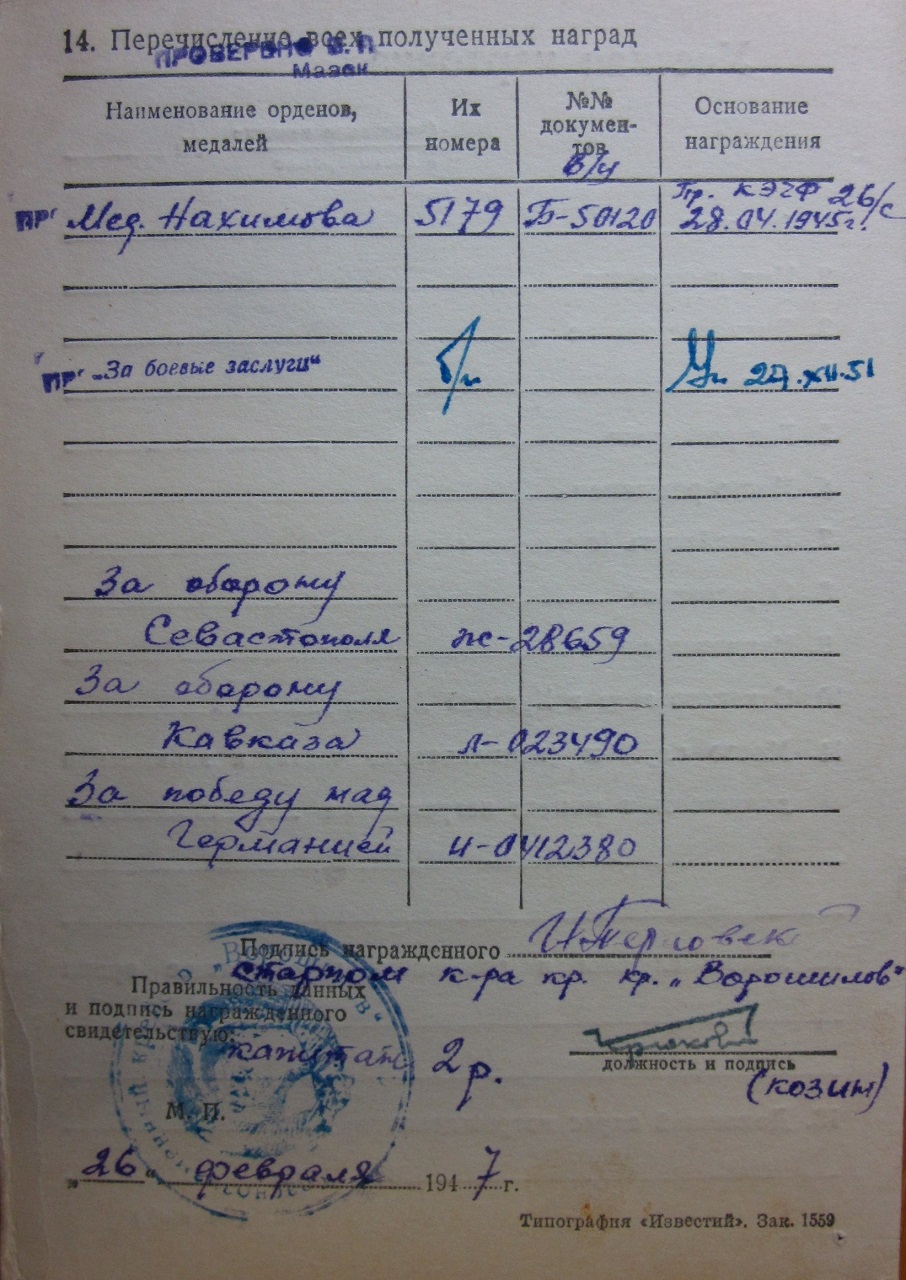 14. Перечисление всех полученных наград
ПРОВЕРЕНО В. П.
Наименование орденов, медалей
Их номера
№№ документов
б/ч
Основание награждения
ПР Мед. Нахимова 5179 Б-50120 Пр. КЭЧФ 26/с
28.04.1945г.
ПР „За боевые заслуги“ б/н Ук 27.XII.51
За оборону
Севастополя ж-28659
За оборону
Кавказа л-023490
За победу над
Германией и-0412380
Подпись награжденного
старпом к-ра кр. кр. „Ворошилов“
Правильность данных
и подпись награжденного
свидетельствую:
капитан 2 р.
должность и подпись
(козит)
М. П.
„26“ февраля 1947 г.
Типография «Известий». Зак. 1559